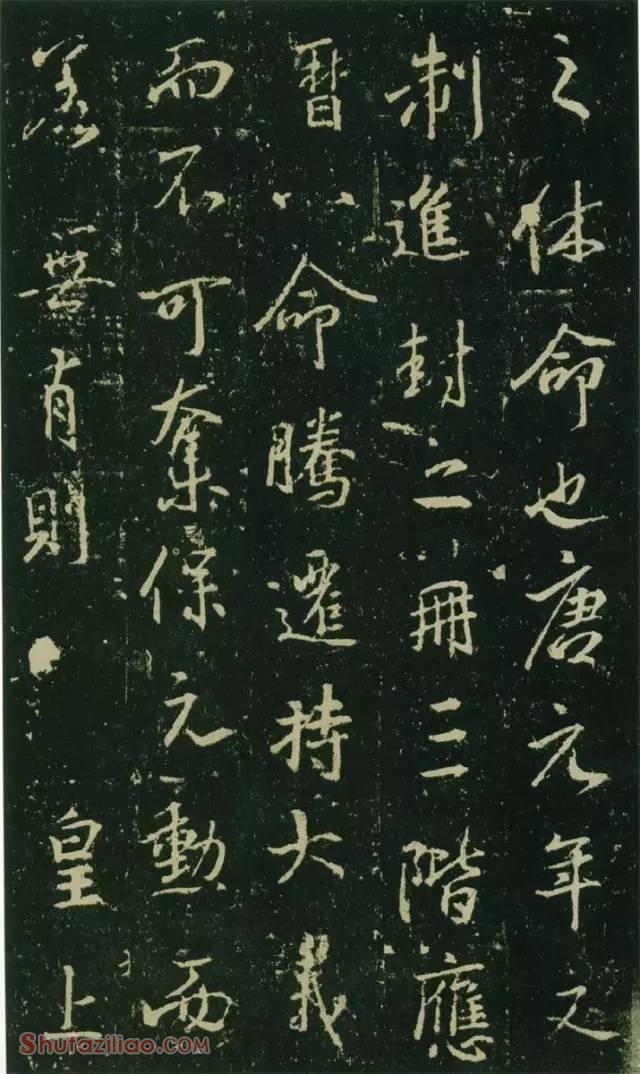 之休命也唐元年又
制進封二冊三階應
曆八命騰遷持大義
而不可奪保元勳而
無有則 皇上
Shufaziliao.com